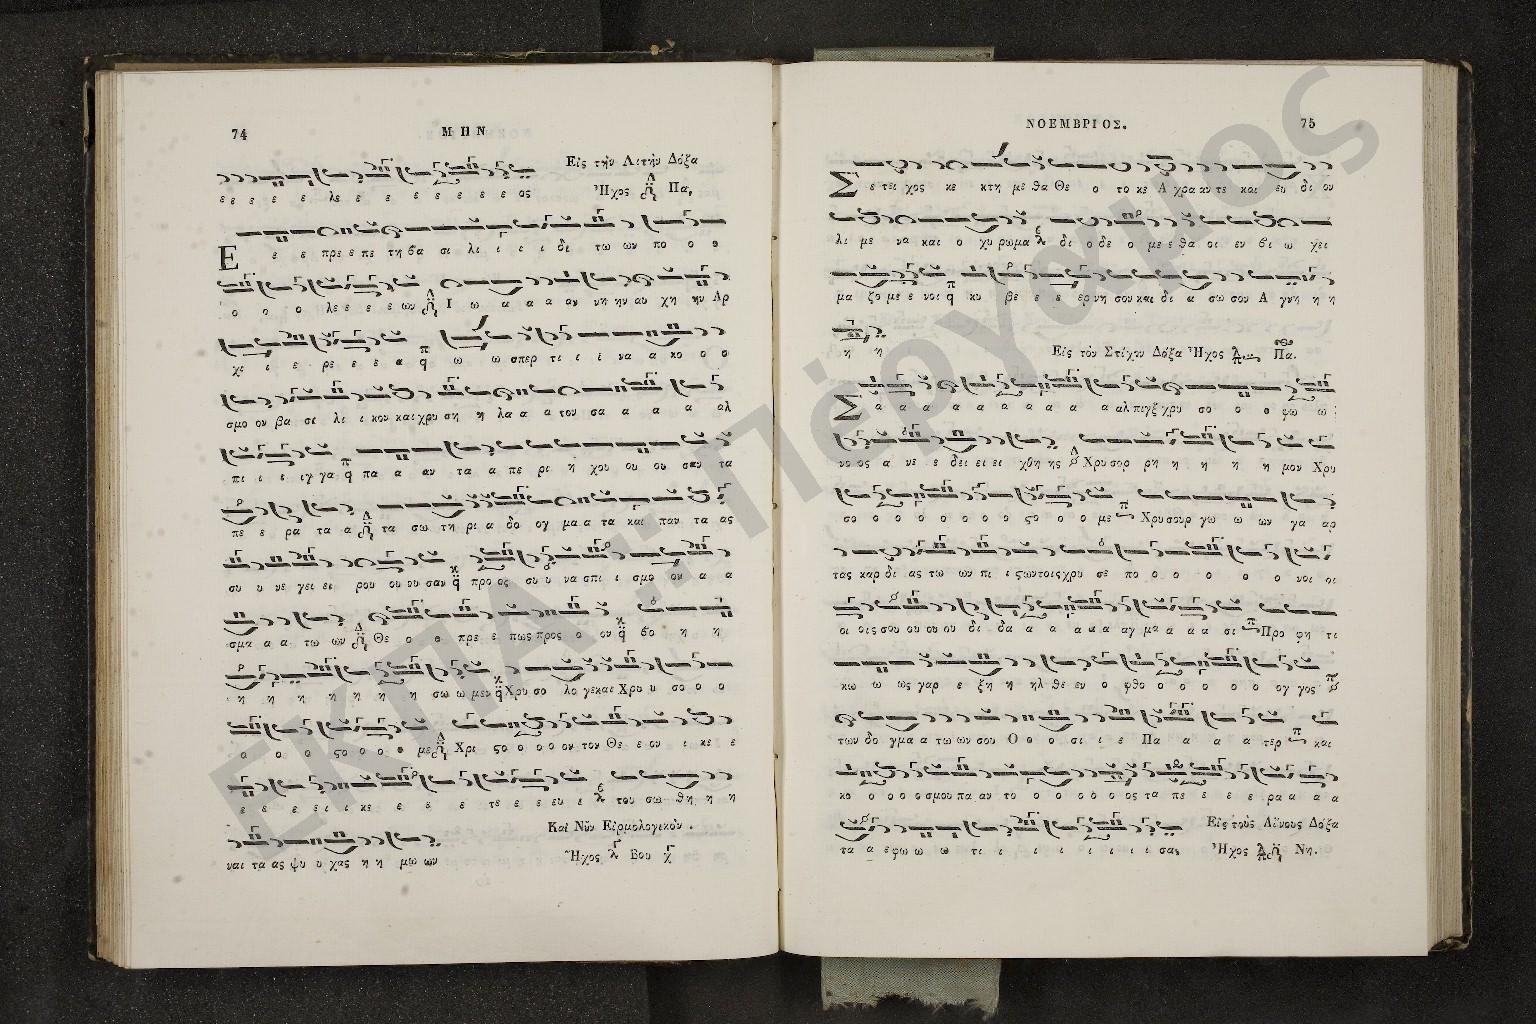 74
ΜΗΝ
Εἰς τὴν Λιτὴν Δόξα
ε ε ε ε ε λε ε ε ε ε ε ε ε ος Ἦχος Πα,
Ε ε ε πρε ε πε τη βα σι λι ι ι ι δι τω ων πο ο ο
ο ο ο λε ε ε ε ων Ι ω α α α αν νη ην αυ χη ην Αρ
χι ι ε ρε ε ε α ω ω σπερ τι ι ι να α κο ο ο
σμο ον βα σι λι ι κον και χρυ ση η λα α α του σα α α α αλ
πι ι ι ιγ γα πα α αν τα α πε ρι η χου ου ου σαν τα
πε ε ρα τα α τα σω τη ρι α δο ογ μα α τα και παν τα ας
συ υ νε γει ει ρου ου ου σαν προ ος συ υ να σπι ι σμο ον α α
σμα α α τω ων Θε ο ο πρε ε πως προς ο ον βο η η
η η η η η η η σω ω μεν Χρυ σο λο γε και Χρυ υ σο ο ο
ο ο ο ςο ο ο ο με Χρι ςο ο ο ο ον τον Θε ε ον ι κε ε
ε ε ε ε ι ι κε ε ε ε τε ε ε ευ ε του σω θη η η
ναι τα ας ψυ υ χας η η μω ων
Καὶ Νῦν Εἱρμολογικὸν.
Ἦχος Βου
ΝΟΕΜΒΡΙΟΣ.
75
Σ ε τει χος κε κτη με θα Θε ο το κε Α χρα κυ τε και ευ δι ου
λι με να και ο χυ ρωμα δι ο δε ο με ε θα οι εν βι ω χει
μα ζο με ε νοι κυ βε ε ε ερ νη σου και δι α σω σου Α γνη η η
η η
Εἰς τὸν Στίχον Δόξα Ἦχος Πα.
Σ α α α α α α α α α αλ πιγξ χρυ σο ο ο φω ω
νο ος α νε ε δει ει ει χθη ης Χρυ σορ ρη η η η η μον Χρυ
σο ο ο ο ο ο ο ο ςο ο ο με Χρυ σουρ γω ω ων γα αρ
τας καρ δι ας τω ων πι ι ςων τοις χρυ σε πο ο ο ο ο ο νοι οι
οι οις σου ου ου ου δι δα α α α α αγ μα α α α σι Προ φη τι
κω ω ως γαρ ε ξη η ηλ θε εν ο φθο ο ο ο ο ο ογ γος
των δο γμα α τω ων σου Ο ο ο σι ι ε Πα α α α τερ και
κο ο ο ο ο σμου πα αν το ο ο ο ο ος τα πε ε ε ε ρα α α α
τα α ε φω ω ω τι ι ι ι ι ι ι σας
Εἰς τοὺς Αἴνους Δόξα
Ἦχος Νη.
ΕΚΠΑ :: Πέργαμος